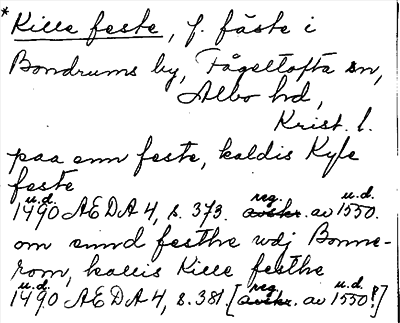 * Kille feste, f. fäste i
Bondrums by, Fågeltofta sn,
Albo hd,
Krist. l.
paa enn feste, kaldis Kyle
feste
u.d. reg. u.d.
1490 AEDA 4, s. 373. avskr. av 1550.
om einnd festhe wdj Bonne-
rom, kallis Kille festhe
u.d. reg. u.d.
1490 AEDA 4, s. 381. [avskr. av 1550?]